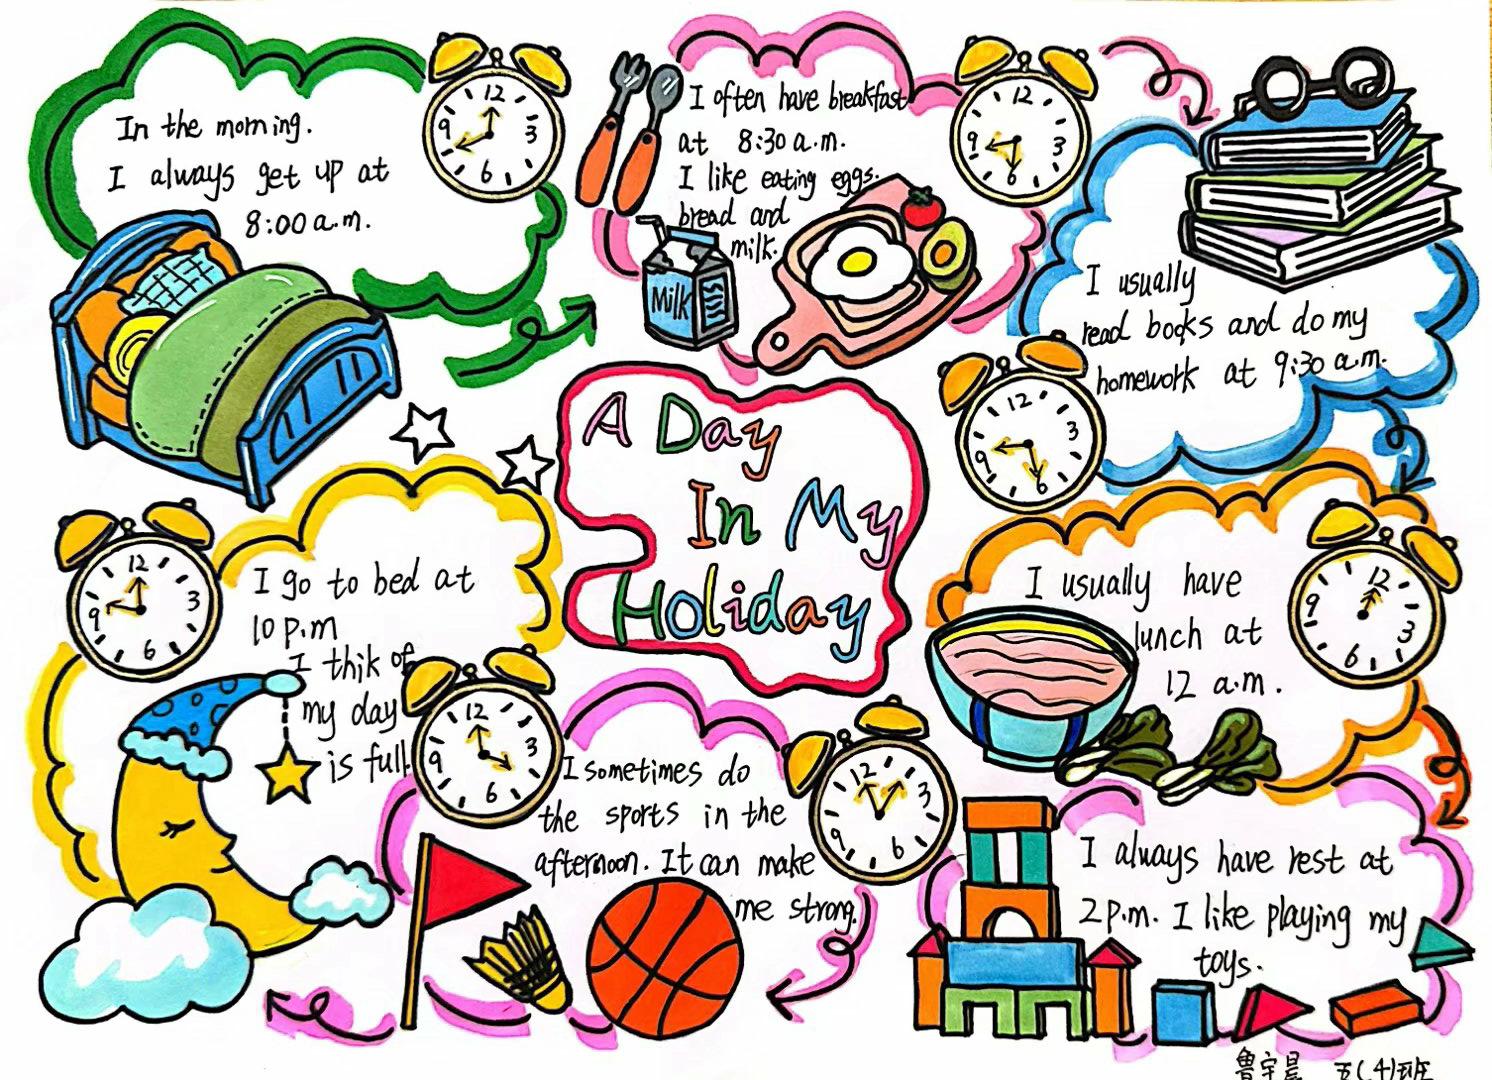 A Day
In My
Holiday
In the morning.
I always get up at
8:00 a.m.
12
3
6
9
I often have breakfast
at 8:30 a.m.
I like eating eggs.
bread and
milk.
Milk
12
3
6
9
I usually
read books and do my
homework at 9:30 a.m.
12
3
6
9
I usually have
lunch at
12 a.m.
12
3
6
9
I always have rest at
2 p.m. I like playing my
toys.
12
3
6
9
I sometimes do
the sports in the
afternoon. It can make
me strong.
12
3
6
9
I go to bed at
10 p.m
I thik of
my day
is full.
12
3
6
9
鲁宇晨 五(4)班